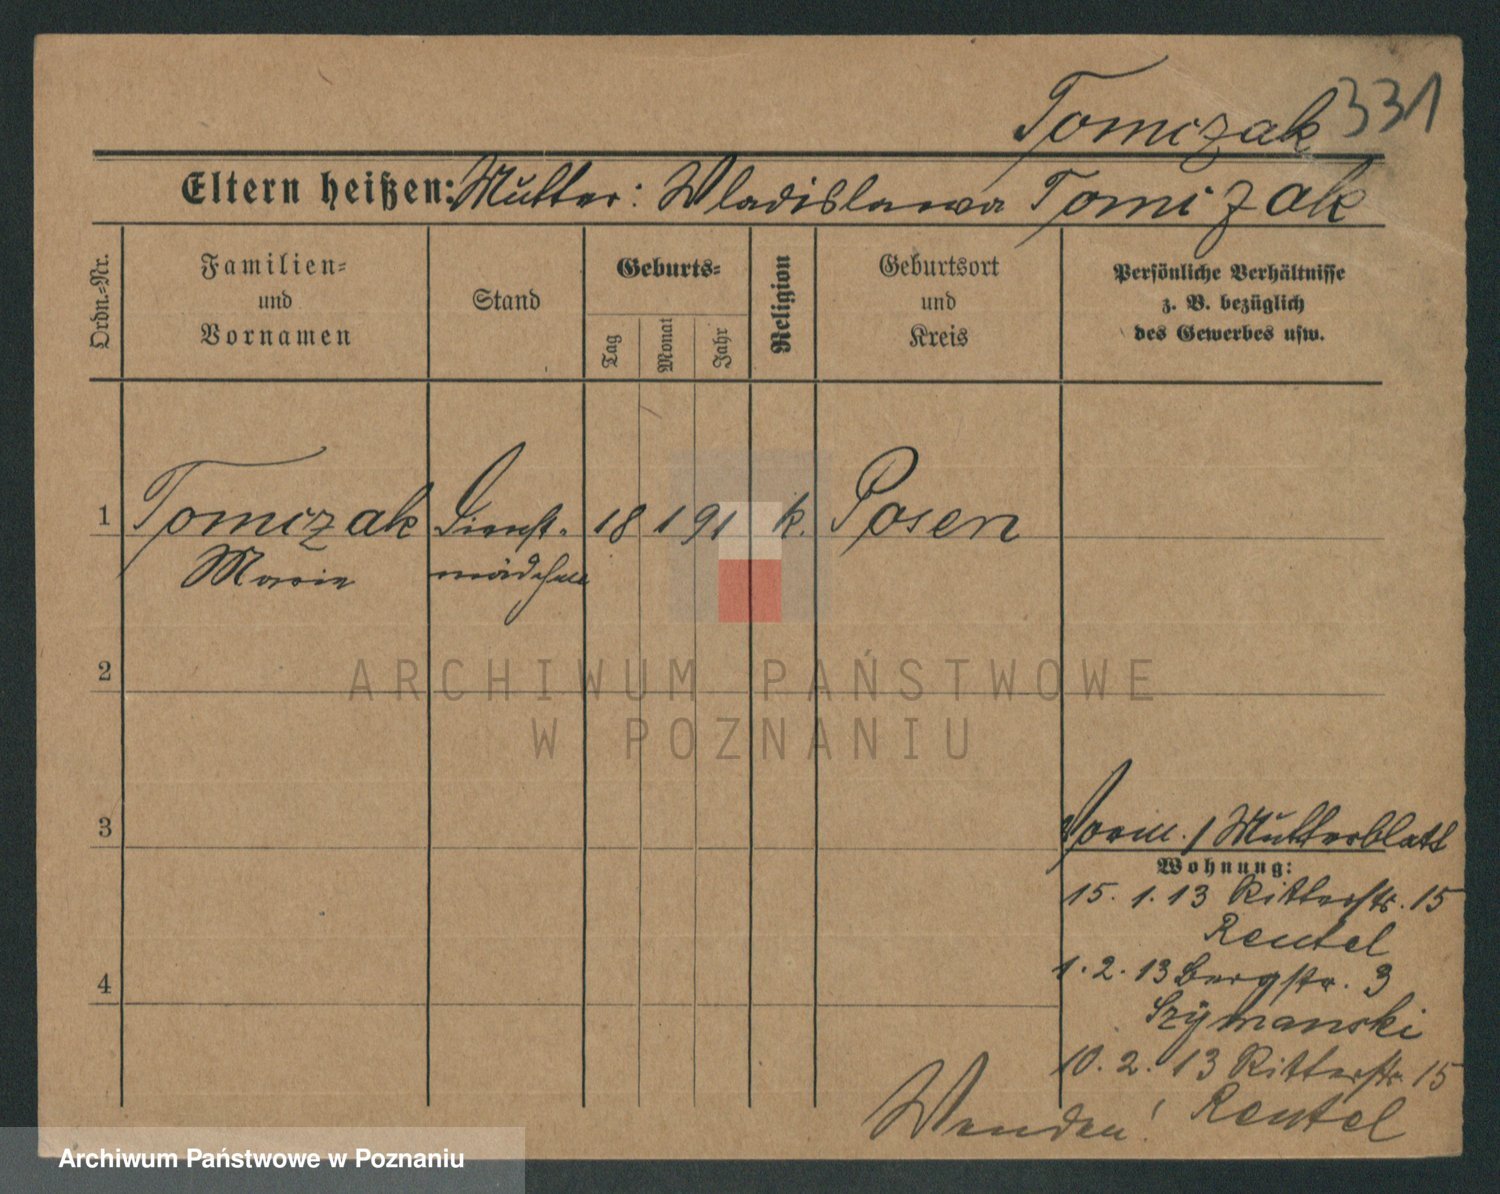 Tomczak 331
Eltern heißen: Mutter: Wladislawa Tomczak
Ordn.-Nr.
Familien-
und
Vornamen
Stand
Geburts-
Tag
Monat
Jahr
Religion
Geburtsort
und
Kreis
Persönliche Verhältnisse
z. B. bezüglich
des Gewerbes usw.
1 Tomczak Dienst- 18 1 91 k. Posen
Marie mädchen
2
ARCHIWUM PAŃSTWOWE
W POZNANIU
3
Mutterblatt
Wohnung:
15. 1. 13 Ritterstr. 15
Rentel
4
1. 2. 13 Bergstr. 3
Szymanski
10. 2. 13 Ritterstr. 15
Rentel
Wenden!
Archiwum Państwowe w Poznaniu